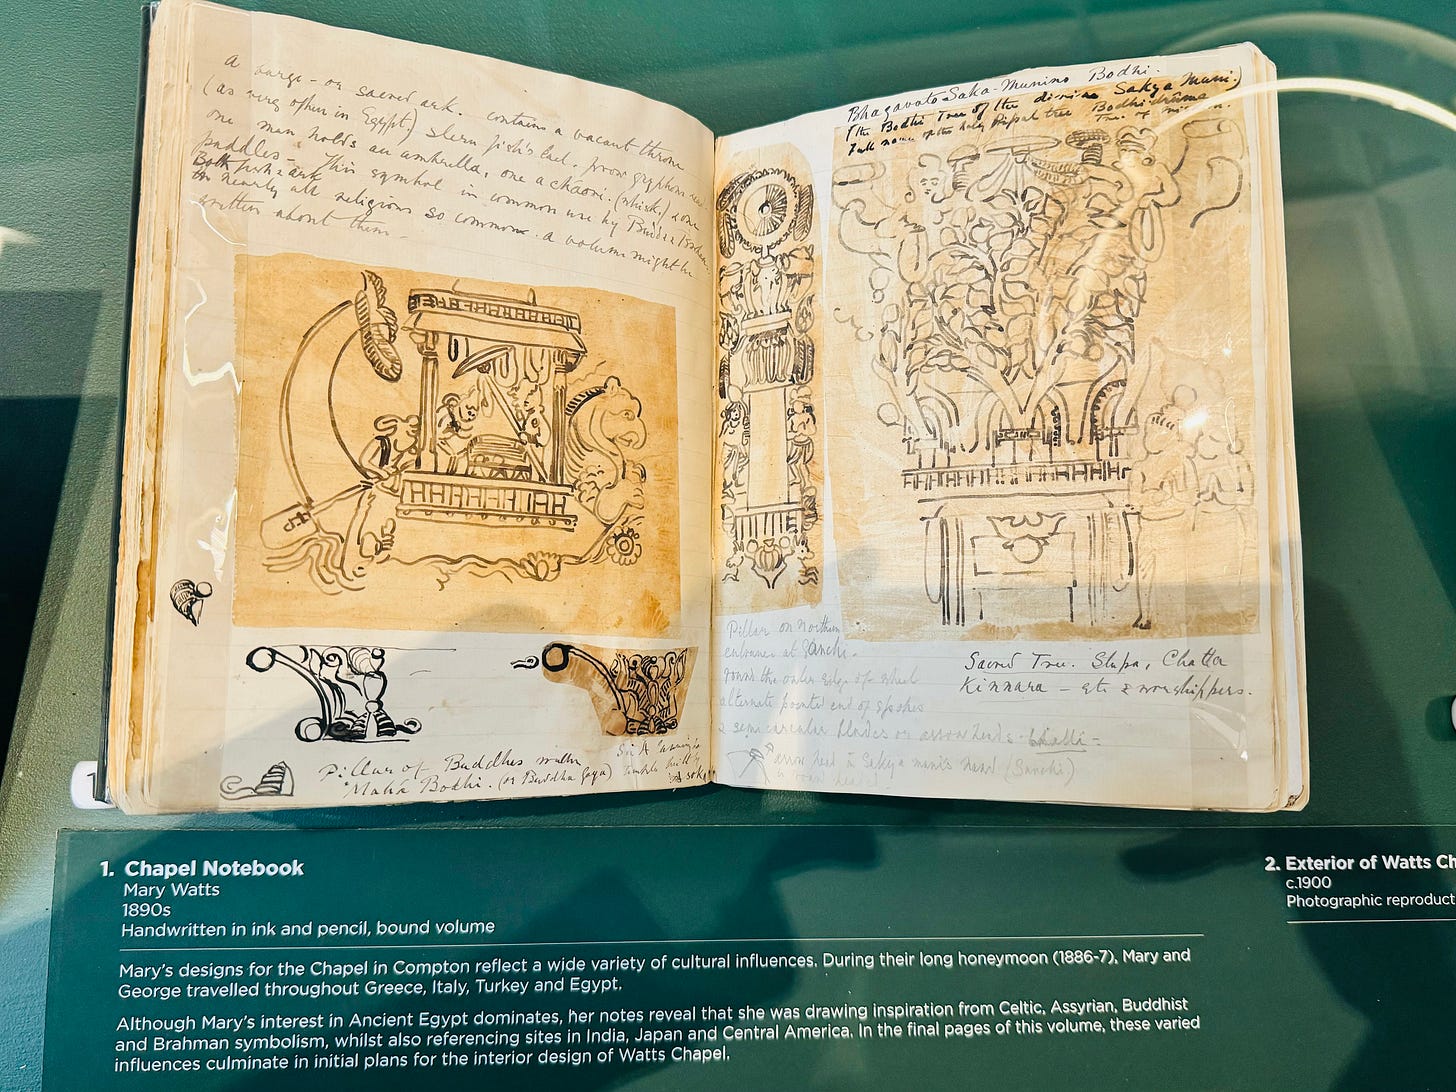 a barge - or sacred ark. contains a vacant throne
(as very often in Egypt) stern fish's tail. prow gryphon
one man holds an umbrella, one a chaori. (whisk) & one
paddles - This symbol in common use by
Both fish & ark
in nearly all religions so common a volume might be
written about them -
Pillar of Buddhas
Maha Bodhi. (or Buddha Gaya)
Bhagavato Saka-Munino Bodhi.
(the Bodhi Tree of the divine Sakya-Muni.)
full name of the holy Pipal tree Bodhi
Tree of
Pillar on northern
entrance at Sanchi.
round the outer edge of wheel
alternate pointed end of spokes
& semi circular blades or arrow heads
arrow head in Sakya muni's hand (Sanchi)
Sacred Tree. Stupa, Chatta
Kinnara - &c & worshippers.
1. Chapel Notebook
Mary Watts
1890s
Handwritten in ink and pencil, bound volume
Mary's designs for the Chapel in Compton reflect a wide variety of cultural influences. During their long honeymoon (1886-7), Mary and
George travelled throughout Greece, Italy, Turkey and Egypt.
Although Mary's interest in Ancient Egypt dominates, her notes reveal that she was drawing inspiration from Celtic, Assyrian, Buddhist
and Brahman symbolism, whilst also referencing sites in India, Japan and Central America. In the final pages of this volume, these varied
influences culminate in initial plans for the interior design of Watts Chapel.
2. Exterior of Watts Ch
c.1900
Photographic reproduct